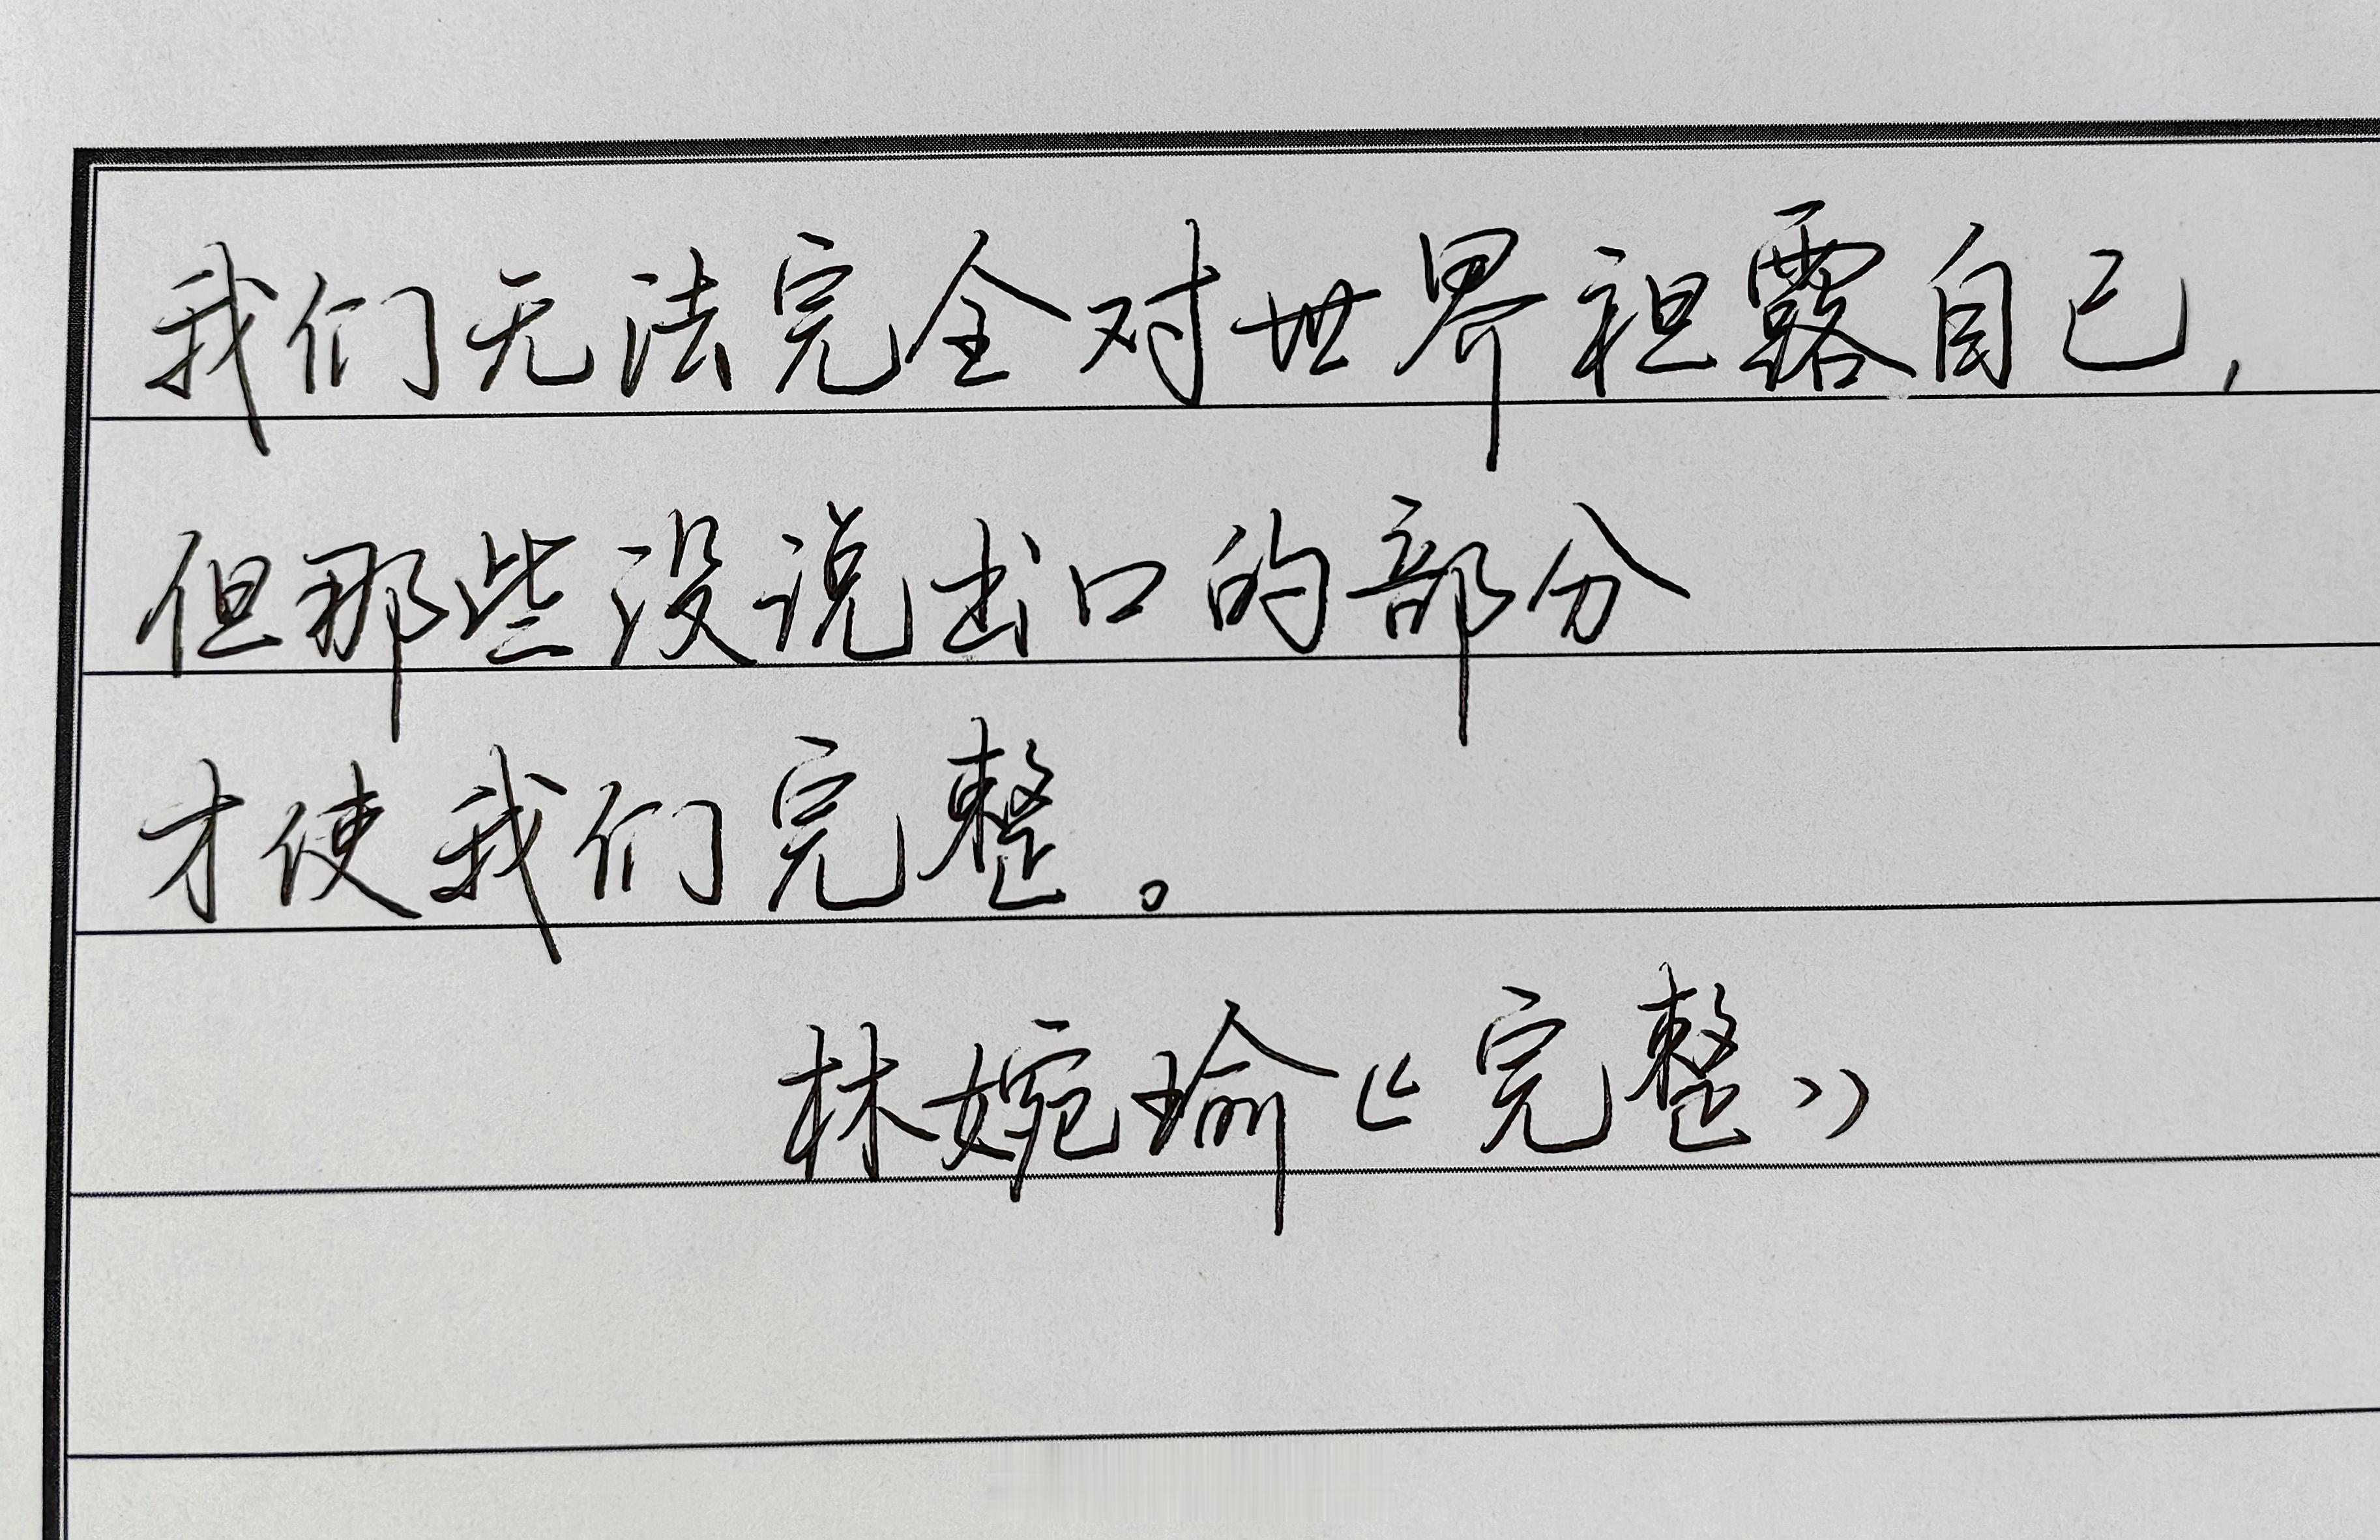 我们无法完全对世界袒露自己,
但那些没说出口的部分
才使我们完整。
林婉瑜《完整》